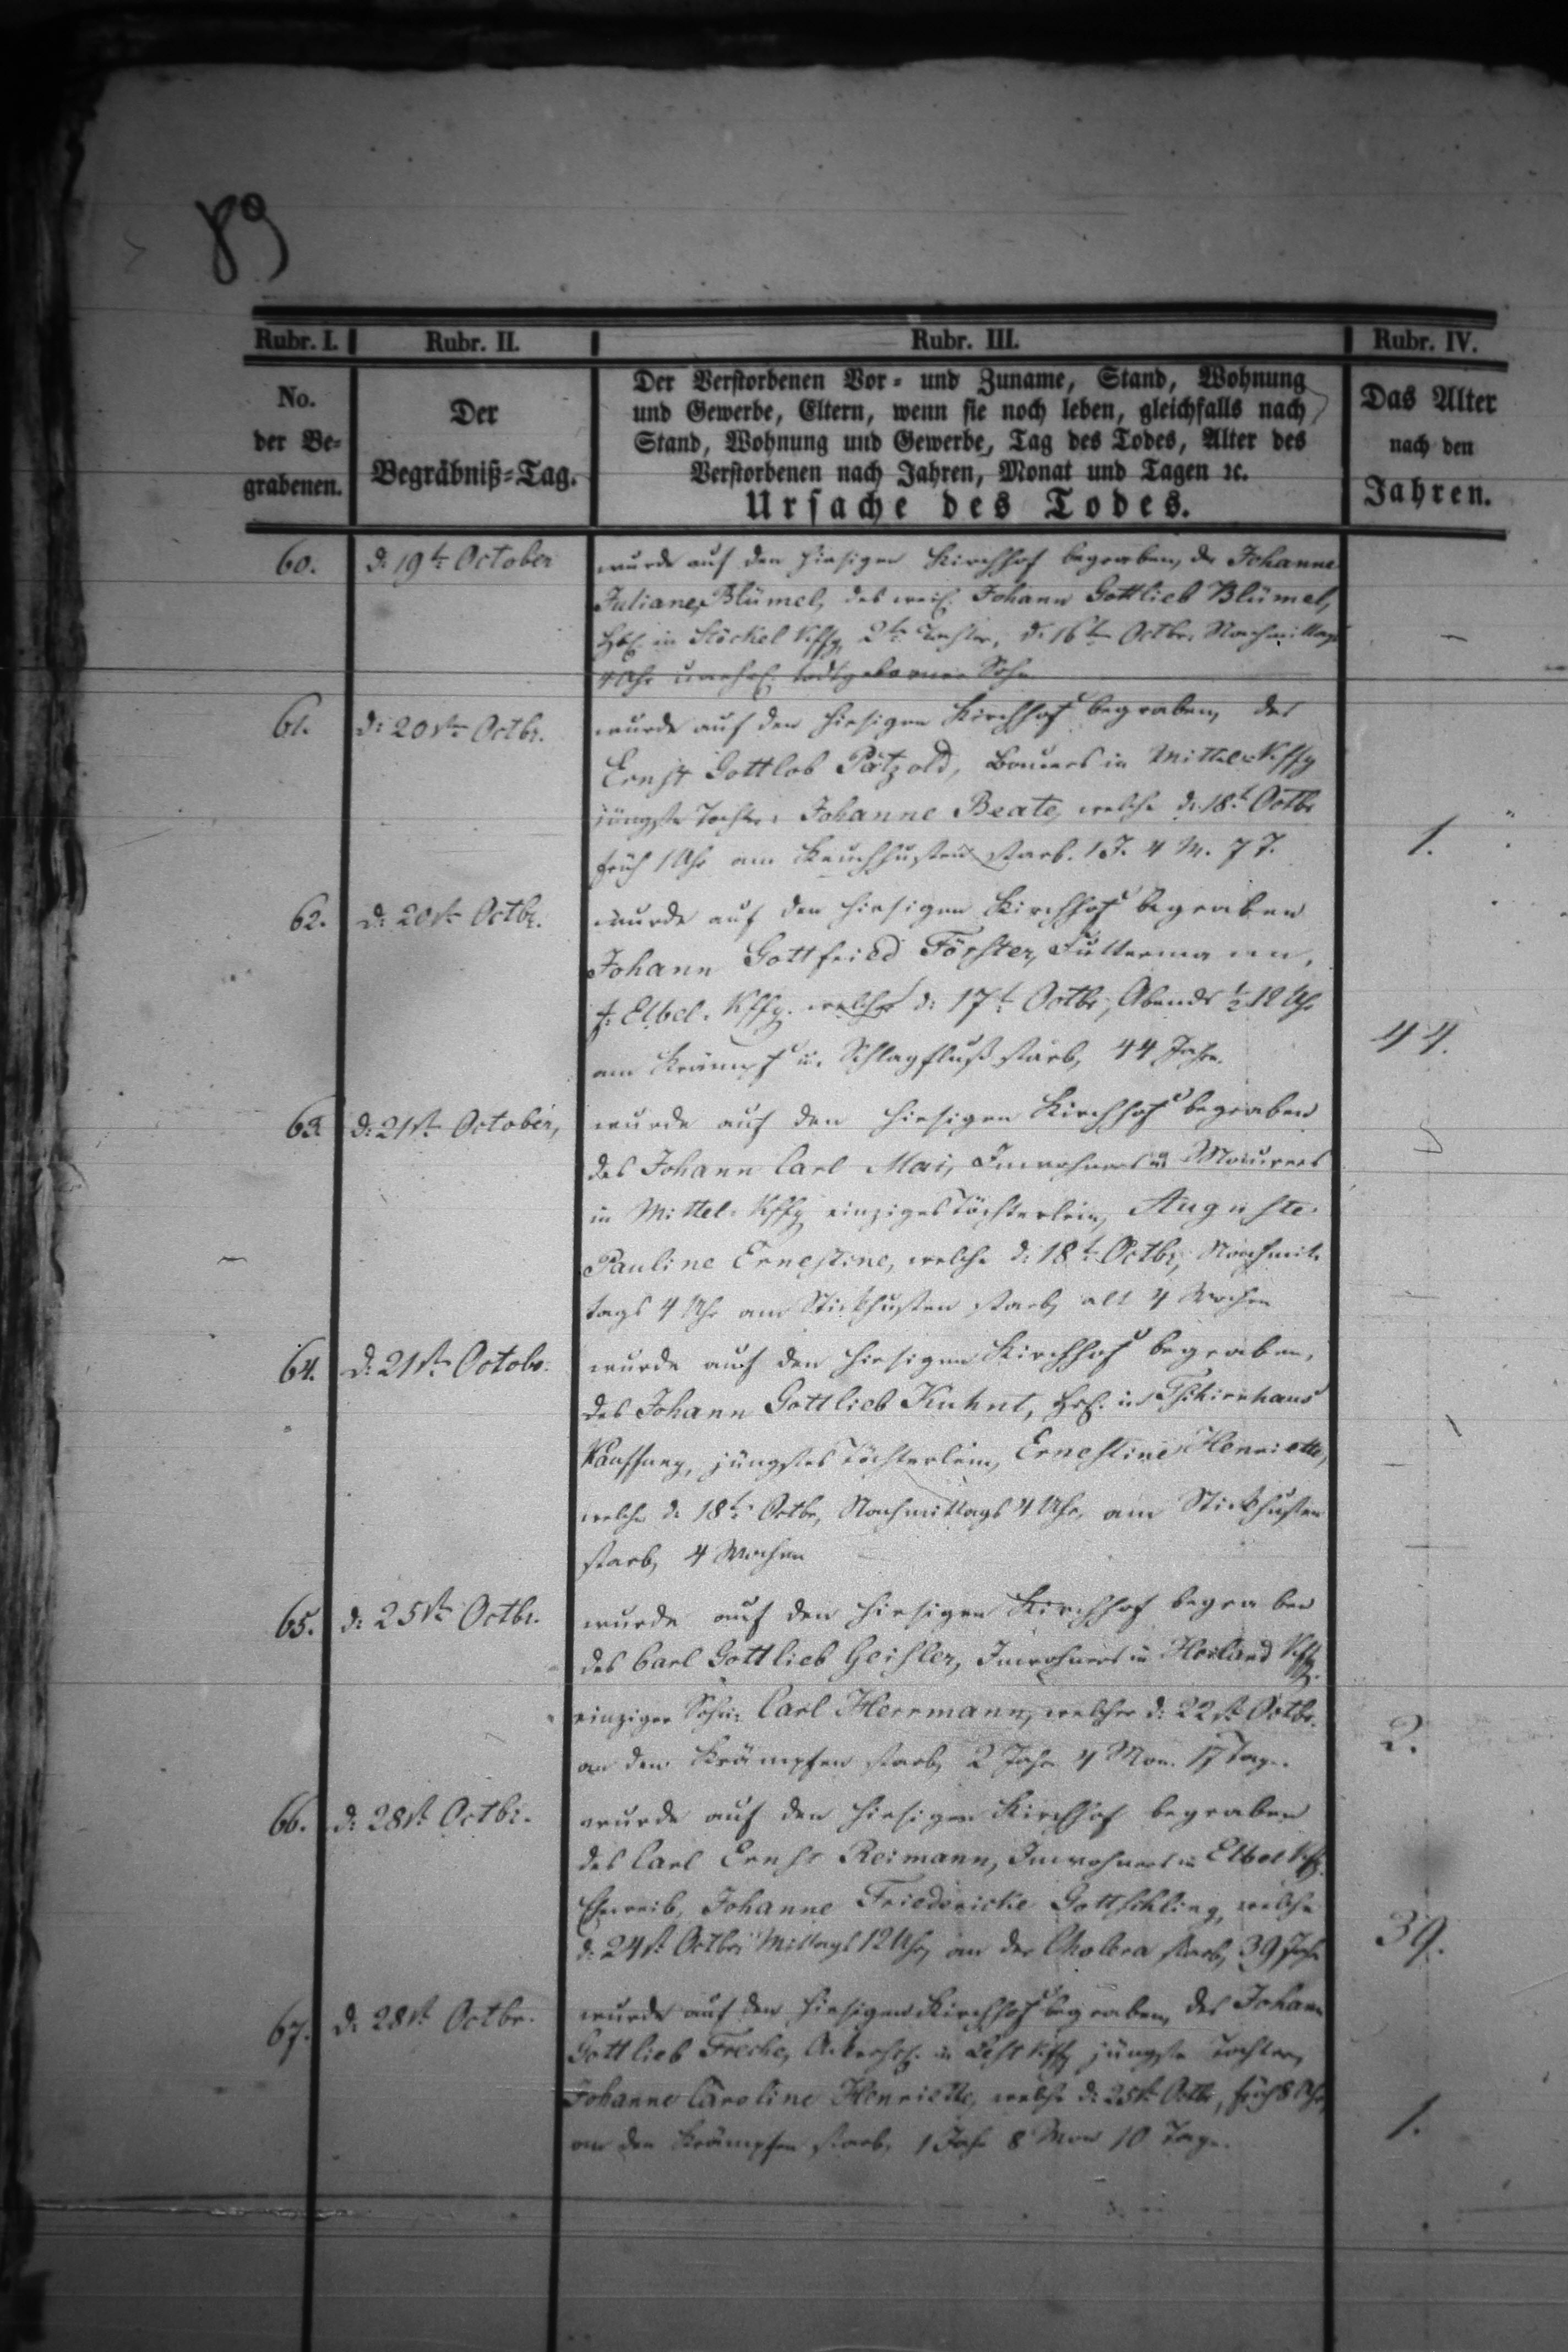 89
Rubr. I. Rubr. II. Rubr. III. Rubr. IV.
No.
der Be=
grabenen.
Der
Begräbniß=Tag.
Der Verstorbenen Vor= und Zuname, Stand, Wohnung
und Gewerbe, Eltern, wenn sie noch leben, gleichfalls nach
Stand, Wohnung und Gewerbe, Tag des Todes, Alter des
Verstorbenen nach Jahren, Monat und Tagen ꝛc.
Ursache des Todes.
Das Alter
nach den
Jahren.
60. d. 19t October wurde auf den hiesigen Kirchhof begraben, der Johanne
Juliane Blümel, des weil. Johann Gottlieb Blümel,
in Stöckel Kffg, 2te Tochter, d. 16t Octbr. Nachmittags
4 Uhr unehel. todtgeborner Sohn
61. d. 20st Octbr. wurde auf den hiesigen Kirchhof begraben, des
Ernst Gottlob Pätzold, Bauers in Mittel-Kffg
jüngste Tochter: Johanne Beate, welche d. 18t Octbr
früh 1 Uhr am Keuchhusten starb. 1 J. 4 M. 7 T. 1.
62. d. 20st Octbr. wurde auf den hiesigen Kirchhof begraben
Johann Gottfried Förster, Futtermann,
Elbel. Kffg. welcher d. 17t Octbr, Abends ½ 12 Uhr
am Krampf u. Schlagfluß starb, 44 Jahr. 44.
63. d. 21st October, wurde auf den hiesigen Kirchhof begraben
des Johann Carl Mai, Inwohners u Maurers
in Mittel-Kffg einziges Töchterlein, Auguste
Pauline Ernestine, welche d. 18t Octbr, Nachmit-
tags 4 Uhr am Stickhusten starb, alt 4 Wochen
64. d. 21st Octobr. wurde auf den hiesigen Kirchhof begraben,
des Johann Gottlieb Kuhnt, in Tschirnhaus
Kauffung, jüngstes Töchterlein, Ernestine Henriette,
welche d. 18t Octbr, Nachmittags 4 Uhr, am Stickhusten
starb, 4 Wochen
65. d. 25st Octbr. wurde auf den hiesigen Kirchhof begraben
des Carl Gottlieb Geisler, Inwohners in Heiland Kffg.
einziger Sohn: Carl Herrmann, welcher d. 22st Octbr.
an den Krämpfen starb, 2 Jahr 4 Mon. 17 Tage. 2.
66. d. 28st Octbr. wurde auf den hiesigen Kirchhof begraben
des Carl Ernst Reimann, Inwohners in Elbel Kffg.
Eheweib, Johanne Friedericke Gottschling, welche
d. 24st Octbr Mittags 12 Uhr, an der Cholera starb, 39 Jahr 39.
67. d. 28st Octbr. wurde auf den hiesigen Kirchhof begraben, des Johann
Gottlieb Freche, in Kffg jüngste Tochter,
Johanne Caroline Henriette, welche d. 25st Octbr, früh 8 Uhr,
an den Krämpfen starb, 1 Jahr 8 Mon 10 Tage. 1.